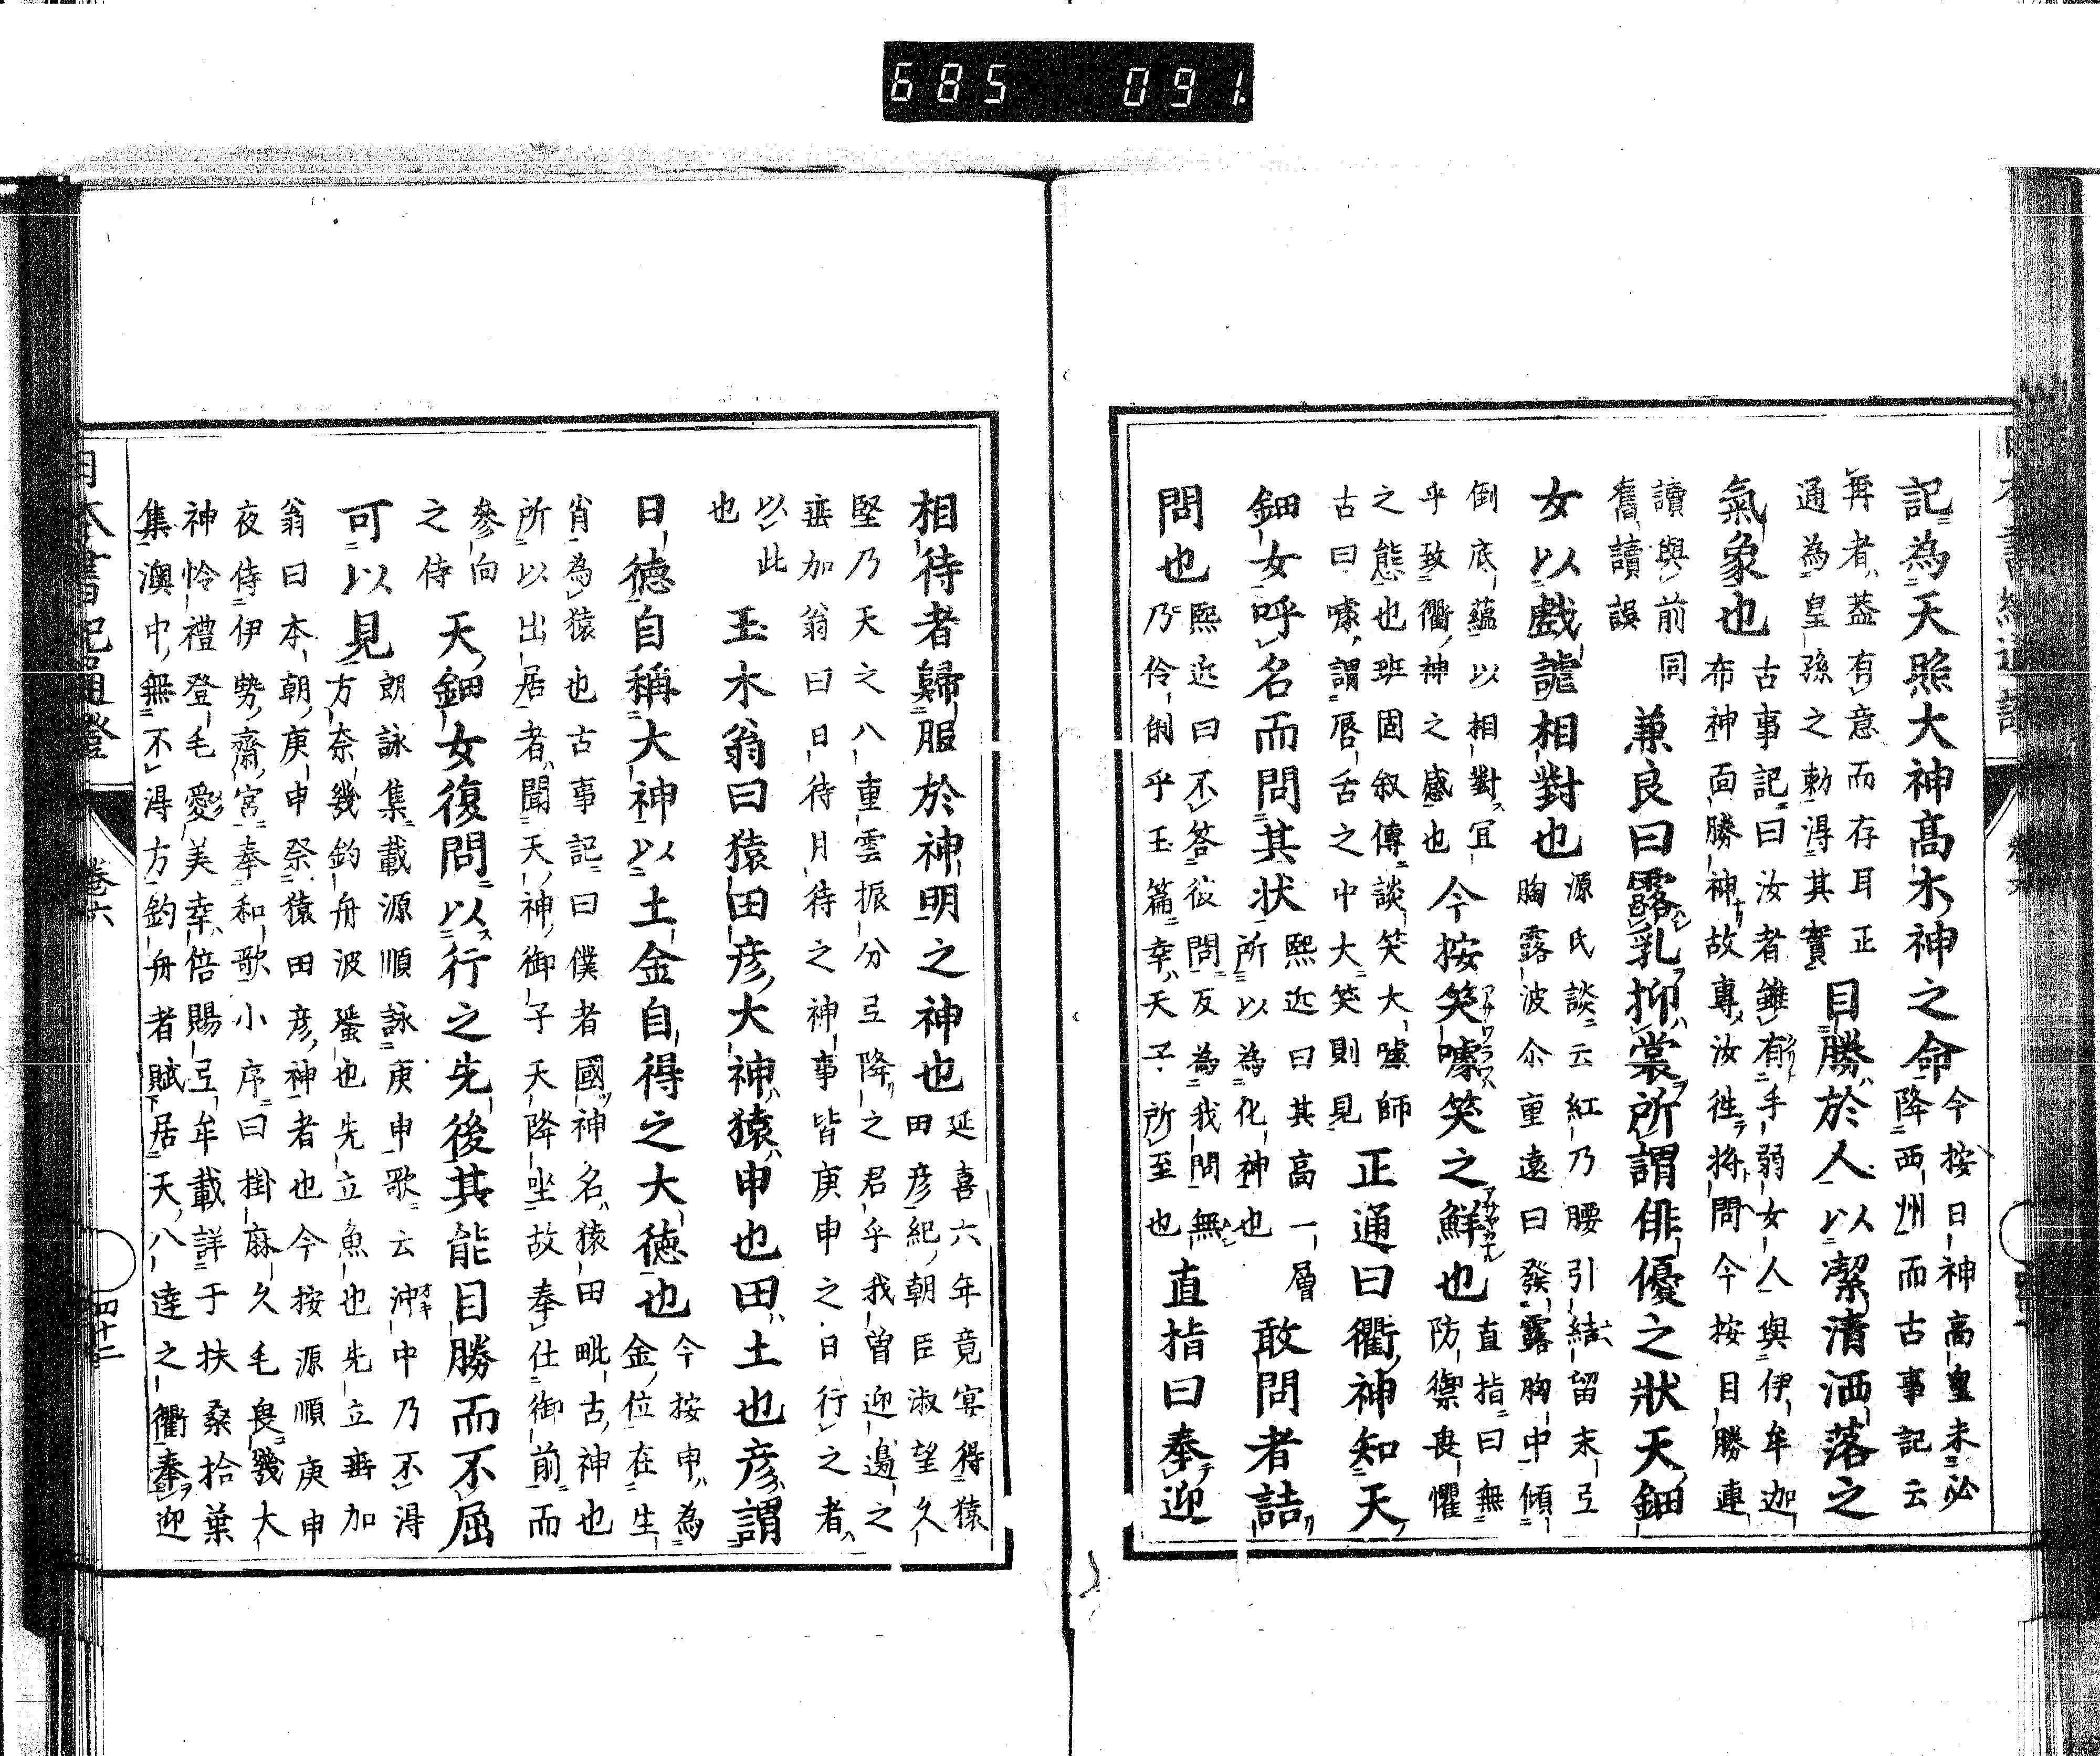 685 091
記為天照大神高木神之命今按日神高皇未必
降西州而古事記云
再者蓋有意而存耳正
通為皇孫之勅得其實目勝於人以潔清洒落之
氣象也古事記曰汝者雖有手弱女人與伊牟迦
布神面勝神故專汝往將問今按目勝連
讀與前同
舊讀誤兼良曰露乳抑裳所謂俳優之狀天鈿
女以戲謔相對也源氏談云紅乃腰引結留末弖
胸露波尒重遠曰發露胸中傾
倒底蘊以相對冝
乎致衢神之感也今按笑噱笑之鮮也直指曰無
防禦畏懼
之態也班固叙傳談笑大噱師
古曰噱謂唇舌之中大笑則見正通曰衢神知天
鈿女呼名而問其状熙近曰其高一層
所以為化神也敢問者詰
問也熙近曰不答彼問反為我問無
乃伶俐乎玉篇幸天子所至也直指曰奉迎
相待者歸服於神明之神也延喜六年竟宴得猿
田彦紀朝臣淑望久
堅乃天之八重雲振分弖降之君乎我曽迎邊之
垂加翁曰日待月待之神事皆庚申之日行之者
以此
也玉木翁曰猿田彦大神猿申也田土也彦謂
日德自稱大神以土金自得之大德也今按申為
金位在生
肖為猿也古事記曰僕者國神名猿田毗古神也
所以出居者聞天神御子天降坐故奉仕御前而
參向
之侍天鈿女復問以行之先後其能目勝而不屈
可以見朗詠集載源順詠庚申歌云沖中乃不得
方奈幾釣舟波蜑也先立魚也先立垂加
翁曰本朝庚申祭猿田彦神者也今按源順庚申
夜侍伊勢齋宮奉和歌小序曰掛麻久毛畏幾大
神怜禮登毛愛美幸倍賜弖牟載詳于扶桑拾葉
集澳中無不得方釣舟者賦居天八達之衢奉迎
日本書紀通證
卷六
四十二